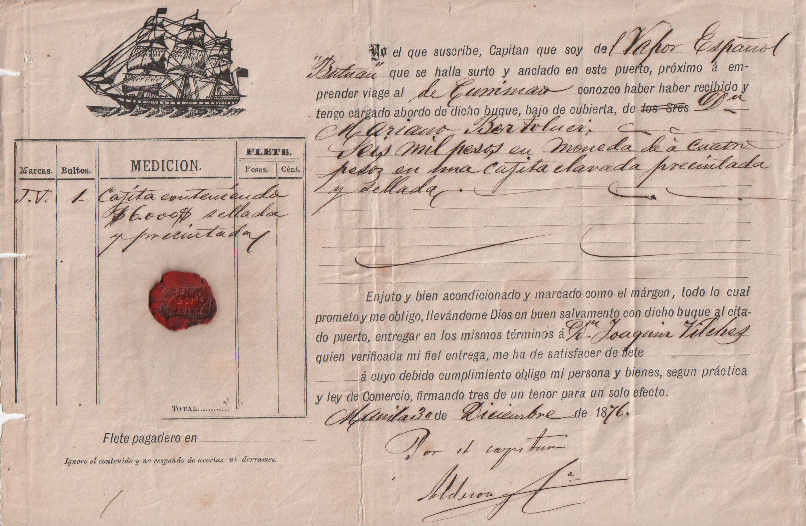 Yo el que suscribe, Capitan que soy del Vapor Español
"Butuan" que se halla surto y anclado en este puerto, próximo á em-
prender viage al de conozco haber haber recibido y
tengo cargado abordo de dicho buque, bajo de cubierta, de los Sres Don
Mariano Bertoluci,
Seis mil pesos en moneda de á cuatro
pesos en una cajita clavada precintada
y sellada.
Marcas. Bultos. MEDICION. FLETE.
Pesos. Cént.
J.V. 1. Cajita conteniendo
$6.000$ sellada
y precintada
TOTAL
Flete pagadero en
Ignoro el contenido y no respondo de averías ni derrames.
Enjuto y bien acondicionado y marcado como el márgen, todo lo cual
prometo y me obligo, llevándome Dios en buen salvamento con dicho buque al cita-
do puerto, entregar en los mismos términos á Dn. Joaquin Vilches
quien verificada mi fiel entrega, me ha de satisfacer de flete
á cuyo debido cumplimiento obligo mi persona y bienes, segun práctica
y ley de Comercio, firmando tres de un tenor para un solo efecto.
Manila 30 de Diciembre de 1876.
Por el capitan